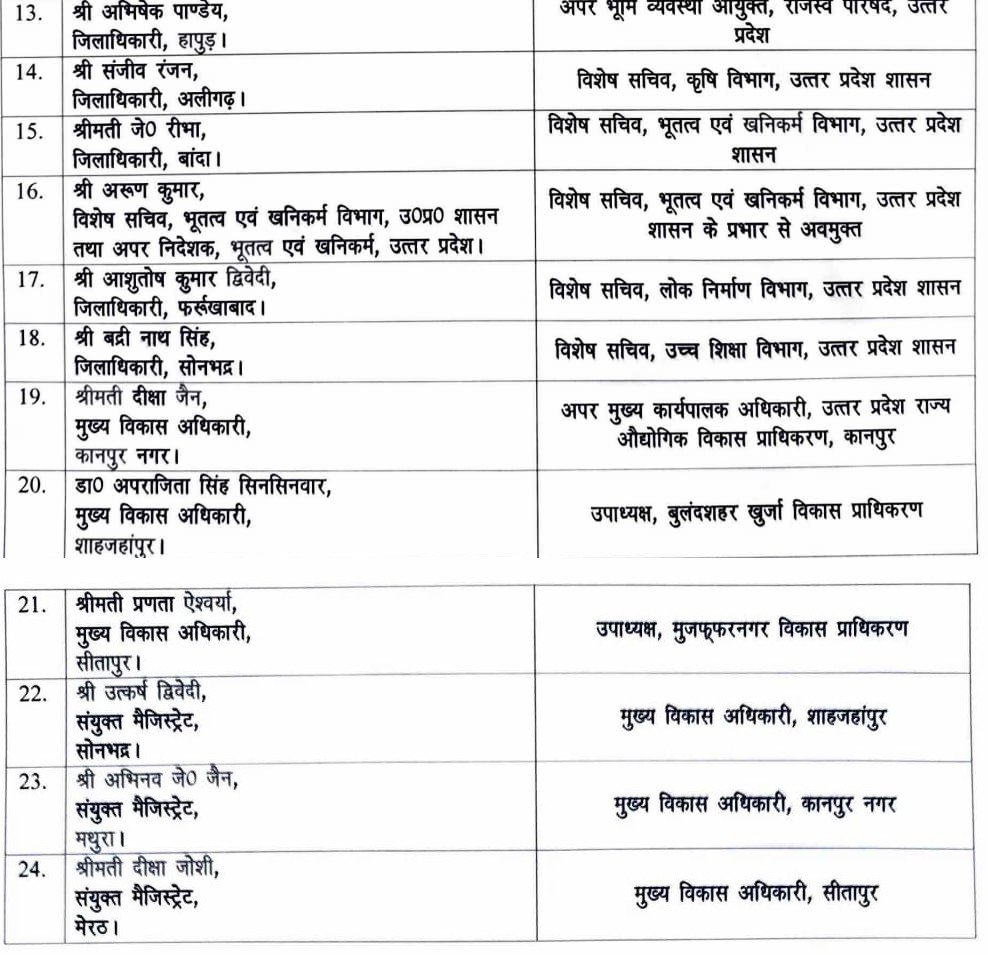 13.
श्री अभिषेक पाण्डेय,
जिलाधिकारी, हापुड़।
अपर भूमि व्यवस्था आयुक्त, राजस्व परिषद, उत्तर
प्रदेश
14.
श्री संजीव रंजन,
जिलाधिकारी, अलीगढ़।
विशेष सचिव, कृषि विभाग, उत्तर प्रदेश शासन
15.
श्रीमती जे0 रीभा,
जिलाधिकारी, बांदा।
विशेष सचिव, भूतत्व एवं खनिकर्म विभाग, उत्तर प्रदेश
शासन
16.
श्री अरूण कुमार,
विशेष सचिव, भूतत्व एवं खनिकर्म विभाग, उ0प्र0 शासन
तथा अपर निदेशक, भूतत्व एवं खनिकर्म, उत्तर प्रदेश।
विशेष सचिव, भूतत्व एवं खनिकर्म विभाग, उत्तर प्रदेश
शासन के प्रभार से अवमुक्त
17.
श्री आशुतोष कुमार द्विवेदी,
जिलाधिकारी, फर्रूखाबाद।
विशेष सचिव, लोक निर्माण विभाग, उत्तर प्रदेश शासन
18.
श्री बद्री नाथ सिंह,
जिलाधिकारी, सोनभद्र।
विशेष सचिव, उच्च शिक्षा विभाग, उत्तर प्रदेश शासन
19.
श्रीमती दीक्षा जैन,
मुख्य विकास अधिकारी,
कानपुर नगर।
अपर मुख्य कार्यपालक अधिकारी, उत्तर प्रदेश राज्य
औद्योगिक विकास प्राधिकरण, कानपुर
20.
डा0 अपराजिता सिंह सिनसिनवार,
मुख्य विकास अधिकारी,
शाहजहांपुर।
उपाध्यक्ष, बुलंदशहर खुर्जा विकास प्राधिकरण
21.
श्रीमती प्रणता ऐश्वर्या,
मुख्य विकास अधिकारी,
सीतापुर।
उपाध्यक्ष, मुजफ्फरनगर विकास प्राधिकरण
22.
श्री उत्कर्ष द्विवेदी,
संयुक्त मैजिस्ट्रेट,
सोनभद्र।
मुख्य विकास अधिकारी, शाहजहांपुर
23.
श्री अभिनव जे0 जैन,
संयुक्त मैजिस्ट्रेट,
मथुरा।
मुख्य विकास अधिकारी, कानपुर नगर
24.
श्रीमती दीक्षा जोशी,
संयुक्त मैजिस्ट्रेट,
मेरठ।
मुख्य विकास अधिकारी, सीतापुर